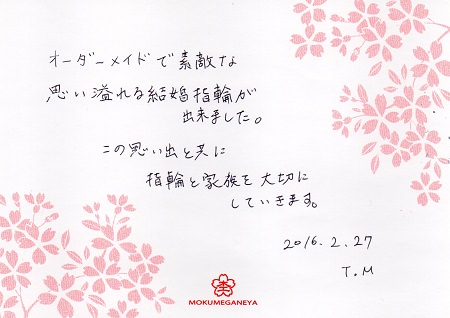 オーダーメイドで素敵な
思い溢れる結婚指輪が
出来ました。
この思い出と共に
指輪と家族を大切に
していきます。
2016.2.27
T.M
MOKUMEGANEYA